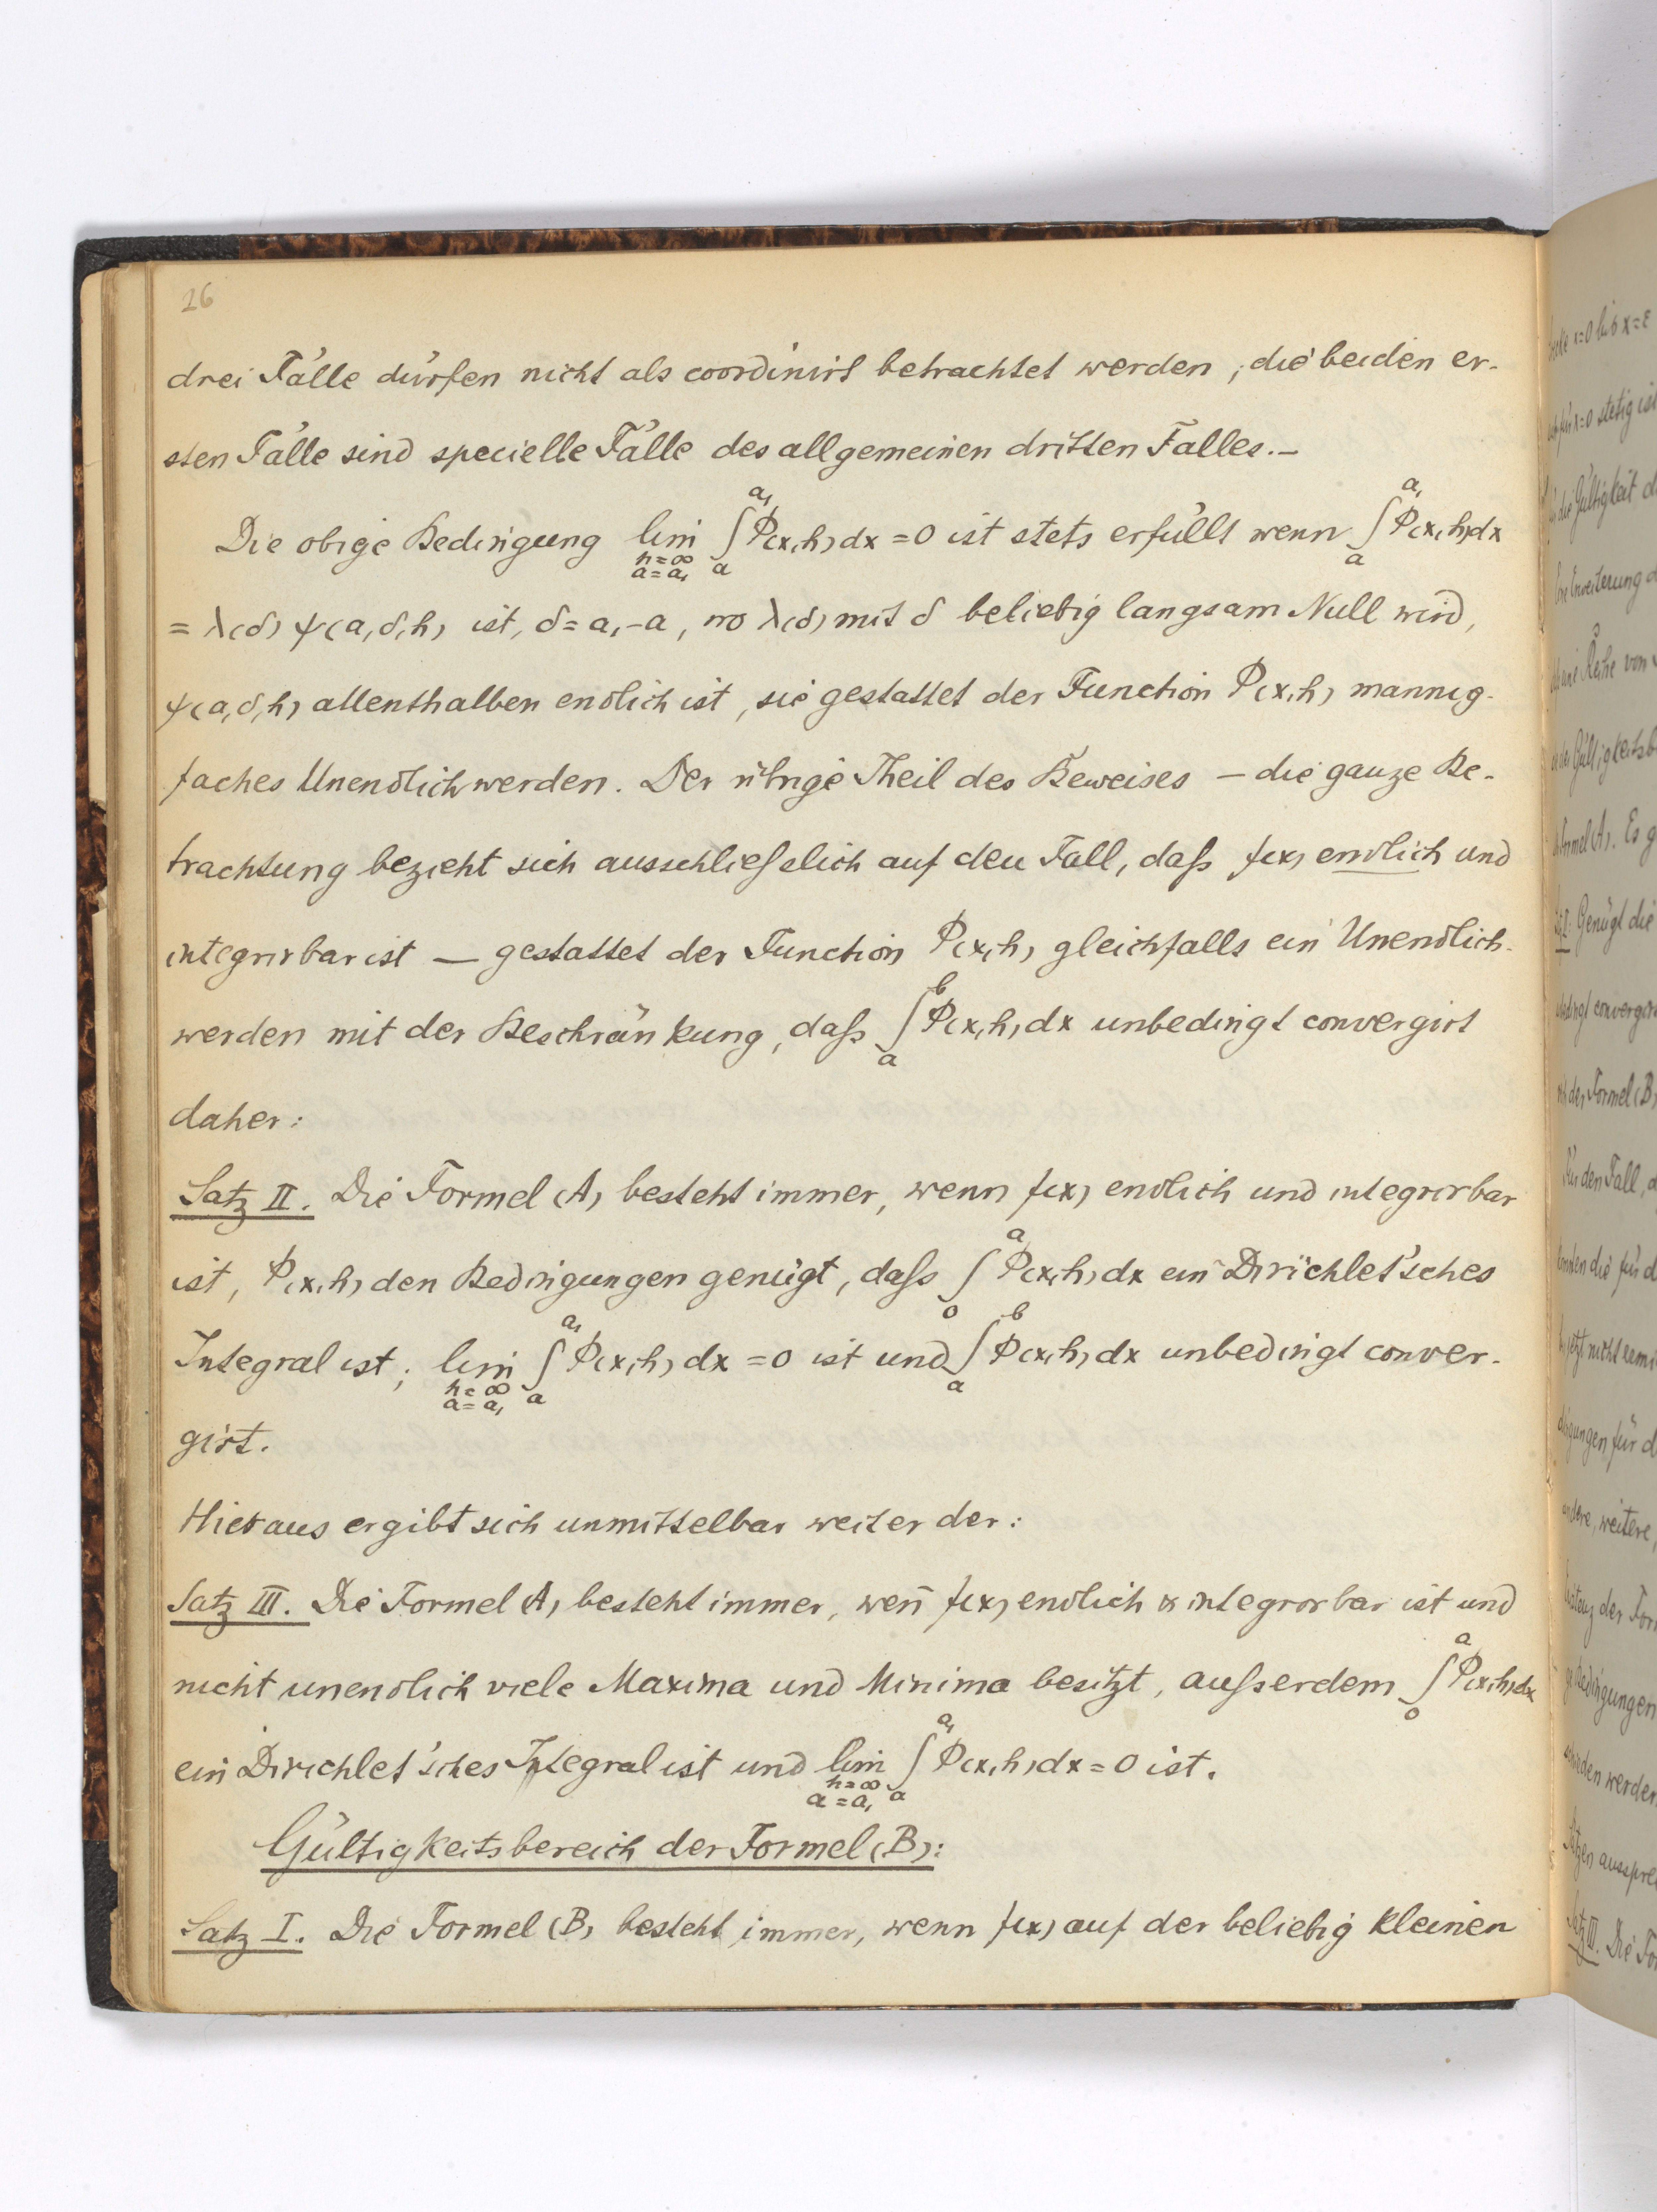 26
drei Fälle dürfen nicht als coordinirt betrachtet werden, die beiden er-
sten Fälle sind specielle Fälle des allgemeinen dritten Falles.—
Die obige Bedingung lim_{h=∞, a=a₁} ∫_a^{a₁} Φ(x,h)dx = 0 ist stets erfüllt wenn ∫_a^{a₁} Φ(x,h)dx
= λ(δ) ψ(a,δ,h) ist, δ = a₁-a, wo λ(δ) mit δ beliebig langsam Null wird,
ψ(a,δ,h) allenthalben endlich ist, sie gestattet der Function Φ(x,h) mannig-
faches Unendlichwerden. Der übrige Theil des Beweises — die ganze Be-
trachtung bezieht sich ausschließlich auf den Fall, daß f(x) endlich und
integrirbar ist — gestattet der Function Φ(x,h) gleichfalls ein Unendlich-
werden mit der Beschränkung, daß ∫_a^b Φ(x,h)dx unbedingt convergirt
daher:
Satz II. Die Formel (A) besteht immer, wenn f(x) endlich und integrirbar
ist, Φ(x,h) den Bedingungen genügt, daß ∫_0^a Φ(x,h)dx ein Dirichlet'sches
Integral ist; lim_{h=∞, a=a₁} ∫_a^{a₁} Φ(x,h)dx = 0 ist und ∫_a^b Φ(x,h)dx unbedingt conver-
girt.
Hieraus ergibt sich unmittelbar weiter der:
Satz III. Die Formel (A) besteht immer, wen̄ f(x) endlich & integrirbar ist und
nicht unendlich viele Maxima und Minima besitzt, außerdem ∫_0^a Φ(x,h)dx
ein Dirichlet'sches Integral ist und lim_{h=∞, a=a₁} ∫_a^{a₁} Φ(x,h)dx = 0 ist.
Gültigkeitsbereich der Formel (B):
Satz I. Die Formel (B) besteht immer, wenn f(x) auf der beliebig kleinen